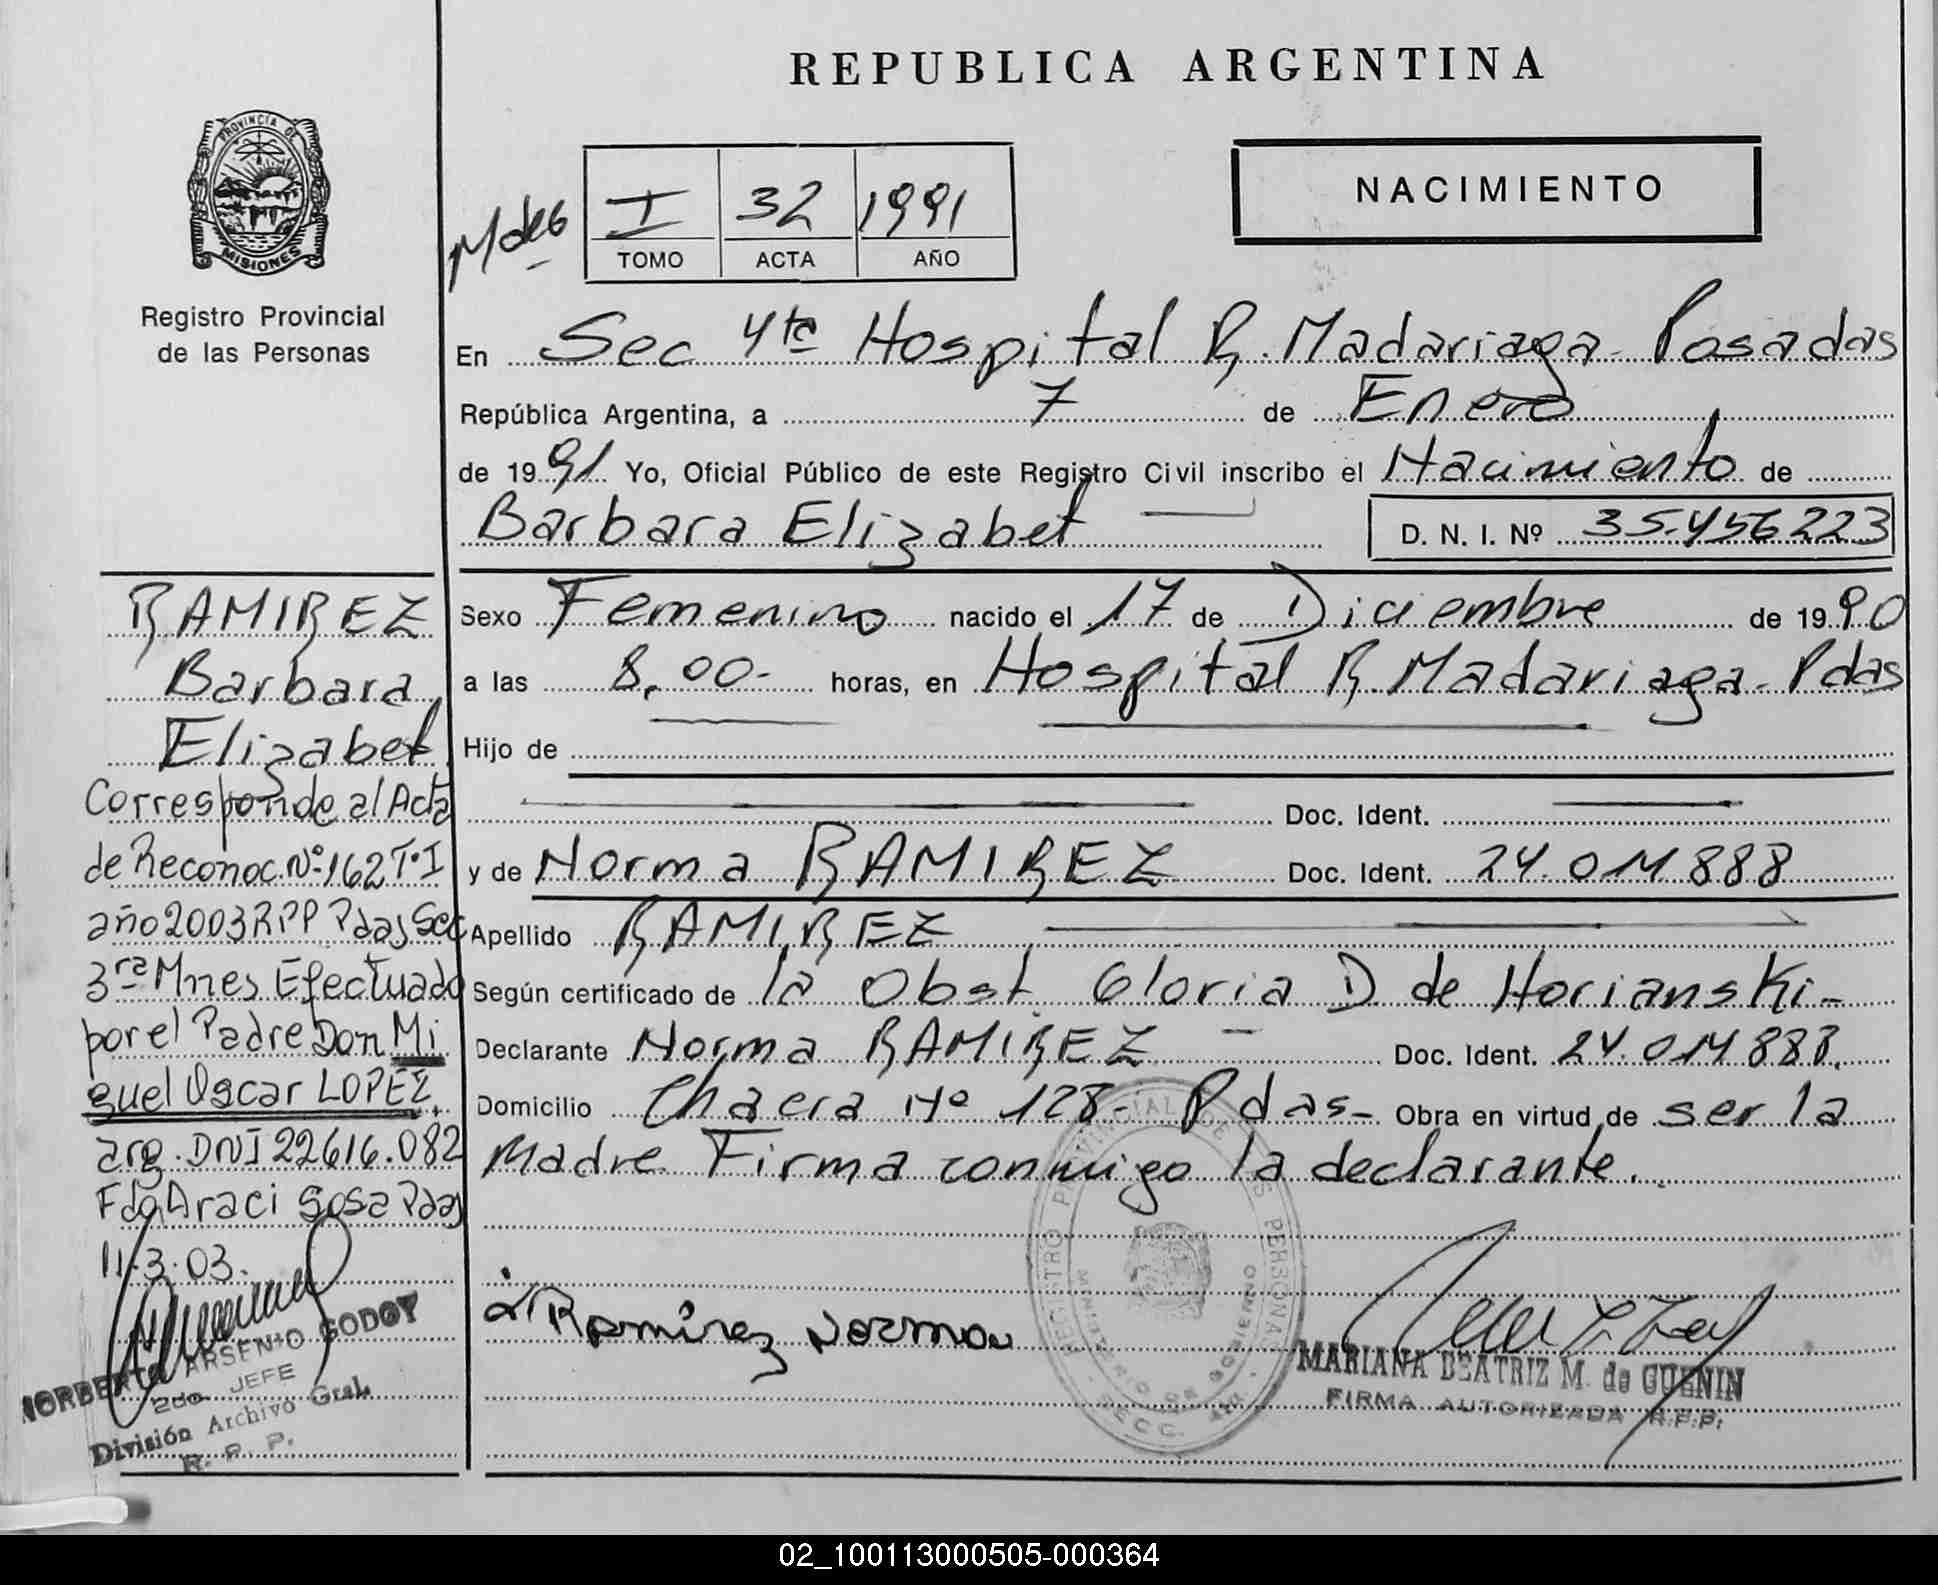 REPUBLICA ARGENTINA
PROVINCIA DE
MISIONES
Registro Provincial
de las Personas
NACIMIENTO
Mdes
I 32 1991
TOMO ACTA AÑO
En Sec 4ta Hospital R. Madariaga - Posadas
República Argentina, a 7 de Enero
de 1991 Yo, Oficial Público de este Registro Civil inscribo el Nacimiento de
Barbara Elizabet — D. N. I. Nº 35.456223
Sexo Femenino nacido el 17 de Diciembre de 1990
a las 8,00- horas, en Hospital R. Madariaga - Pdas
Hijo de
Doc. Ident.
y de Norma RAMIREZ Doc. Ident. 24.011888
Apellido RAMIREZ
Según certificado de la Obst. Gloria D de Horianski-
Declarante Norma RAMIREZ - Doc. Ident. 24.011888.
Domicilio Chacra Nº 128- Pdas- Obra en virtud de ser la
Madre. Firma conmigo la declarante.
Ramirez Norma
REGISTRO PROVINCIAL DE LAS PERSONAS
MINISTERIO DE GOBIERNO
SECC. 4ta
MARIANA BEATRIZ M. de GUENIN
FIRMA AUTORIZADA R.P.P.
RAMIREZ
Barbara
Elizabet
Corresponde al Acta
de Reconoc. Nº 162 Tº I
año 2003 RPP Pdas Sec
3ra Mnes Efectuado
por el Padre Don Mi
guel Oscar LOPEZ,
arg. DNI 22616.082
Fdo Araci Sosa Pdas
11.3.03.
NORBERTO ARSENIO GODOY
2do. JEFE
División Archivo Gral.
R. P. P.
02_100113000505-000364